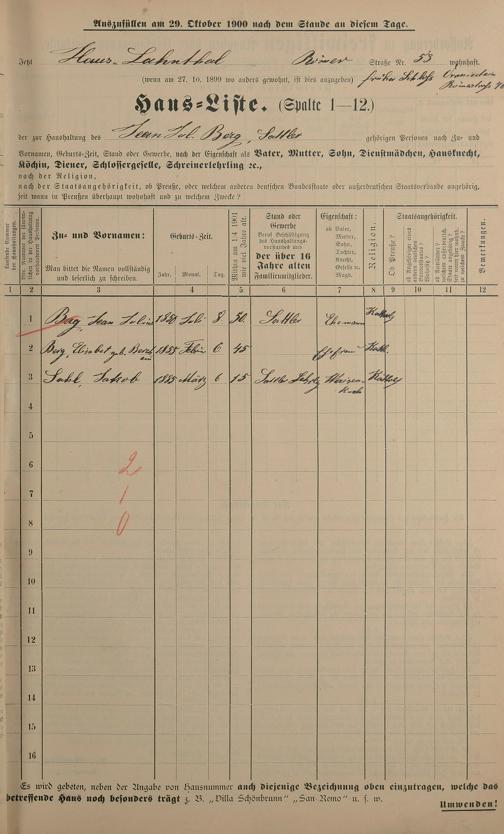 Auszufüllen am 29. Oktober 1900 nach dem Stande an diesem Tage.
Jetzt Haus-Lahnthal Römer Straße Nr. 53 wohnhaft.
(wenn am 27. 10. 1899 wo anders gewohnt, ist dies anzugeben) früher
Haus-Liste. (Spalte 1—12.)
der zur Haushaltung des Jean Jos. Berg, Sattler gehörigen Personen nach Zu- und
Vornamen, Geburts-Zeit, Stand oder Gewerbe, nach der Eigenschaft als Vater, Mutter, Sohn, Dienstmädchen, Hausknecht,
Köchin, Diener, Schlossergeselle, Schreinerlehrling ꝛc.,
nach der Religion,
nach der Staatsangehörigkeit, ob Preuße, oder welchem anderen deutschen Bundesstaate oder außerdeutschen Staatsverbande angehörig,
seit wann in Preußen überhaupt wohnhaft und zu welchem Zwecke?
Zu- und Vornamen:
Man bittet die Namen vollständig
und leserlich zu schreiben.
Geburts-Zeit.
Jahr. Monat. Tag.
Mithin am 1.4 1901
wie viel Jahre alt.
Stand oder
Gewerbe
Beruf Beschäftigung
des Haushaltungs-
vorstandes und
der über 16
Jahre alten
Familienmitglieder.
Eigenschaft:
ob Vater,
Mutter,
Sohn,
Tochter,
Knecht,
Geselle o.
Magd.
Religion.
Staatsangehörigkeit.
Ob Preuße?
Bemerkungen.
1 2 3 4 5 6 7 8 9 10 11 12
1 Berg, Jean 1850 Juli 8 50. Sattler Ehemann Kathol.
2 Berg, Elisabet geb. 1855 6 45 Ehefrau Kath.
3 Jakob 1885 März 6 15 Sattler Lehrlg Kathol.
4
5
6
7
8
2
1
0
9
10
11
12
13
14
15
16
Es wird gebeten, neben der Angabe von Hausnummer auch diejenige Bezeichnung oben einzutragen, welche das
betreffende Haus noch besonders trägt z. B. „Villa Schönbrunn“ „San-Remo“ u. s. w.
Umwenden!